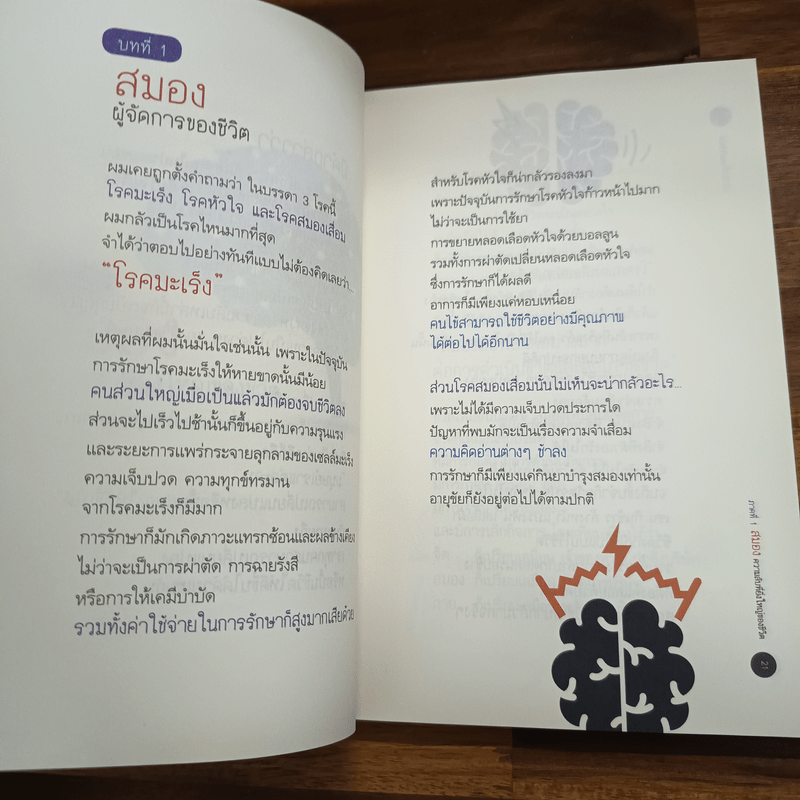 บทที่ 1
สมอง
ผู้จัดการของชีวิต
ผมเคยถูกตั้งคำถามว่า ในบรรดา 3 โรคนี้
โรคมะเร็ง โรคหัวใจ และโรคสมองเสื่อม
ผมกลัวเป็นโรคไหนมากที่สุด
จำได้ว่าตอบไปอย่างทันทีแบบไม่ต้องคิดเลยว่า...
“โรคมะเร็ง”
เหตุผลที่ผมนั้นมั่นใจเช่นนั้น เพราะในปัจจุบัน
การรักษาโรคมะเร็งให้หายขาดนั้นมีน้อย
คนส่วนใหญ่เมื่อเป็นแล้วมักต้องจบชีวิตลง
ส่วนจะไปเร็วไปช้านั้นก็ขึ้นอยู่กับความรุนแรง
และระยะการแพร่กระจายลุกลามของเซลล์มะเร็ง
ความเจ็บปวด ความทุกข์ทรมาน
จากโรคมะเร็งก็มีมาก
การรักษาก็มักเกิดภาวะแทรกซ้อนและผลข้างเคียง
ไม่ว่าจะเป็นการผ่าตัด การฉายรังสี
หรือการให้เคมีบำบัด
รวมทั้งค่าใช้จ่ายในการรักษาก็สูงมากเสียด้วย
สำหรับโรคหัวใจก็น่ากลัวรองลงมา
เพราะปัจจุบันการรักษาโรคหัวใจก้าวหน้าไปมาก
ไม่ว่าจะเป็นการใช้ยา
การขยายหลอดเลือดหัวใจด้วยบอลลูน
รวมทั้งการผ่าตัดเปลี่ยนหลอดเลือดหัวใจ
ซึ่งการรักษาก็ได้ผลดี
อาการก็มีเพียงแค่หอบเหนื่อย
คนไข้สามารถใช้ชีวิตอย่างมีคุณภาพ
ได้ต่อไปได้อีกนาน
ส่วนโรคสมองเสื่อมนั้นไม่เห็นจะน่ากลัวอะไร...
เพราะไม่ได้มีความเจ็บปวดประการใด
ปัญหาที่พบมักจะเป็นเรื่องความจำเสื่อม
ความคิดอ่านต่างๆ ช้าลง
การรักษาก็มีเพียงแค่กินยาบำรุงสมองเท่านั้น
อายุขัยก็ยังอยู่ต่อไปได้ตามปกติ
ภาคที่ 1 สมอง ความลับที่ยิ่งใหญ่ของชีวิต
21